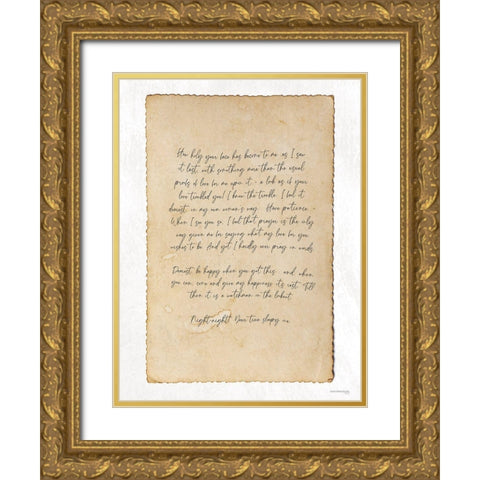 How holy your love has become to me as I saw
it last, with something more than the usual
proofs of love for me upon it - a look as if your
love troubled you! I know the trouble. I feel it
dearest, in my own woman's way. Have patience. -
When I see you so, I feel that prayer is the only
way given me for saying what my love for you
wishes to be. And yet I hardly ever pray in words.
Dearest, be happy when you get this: and, when
you can, come and give my happiness its rest. Till
then it is a watchman on the lookout.
Night-night! Your true sleepy one